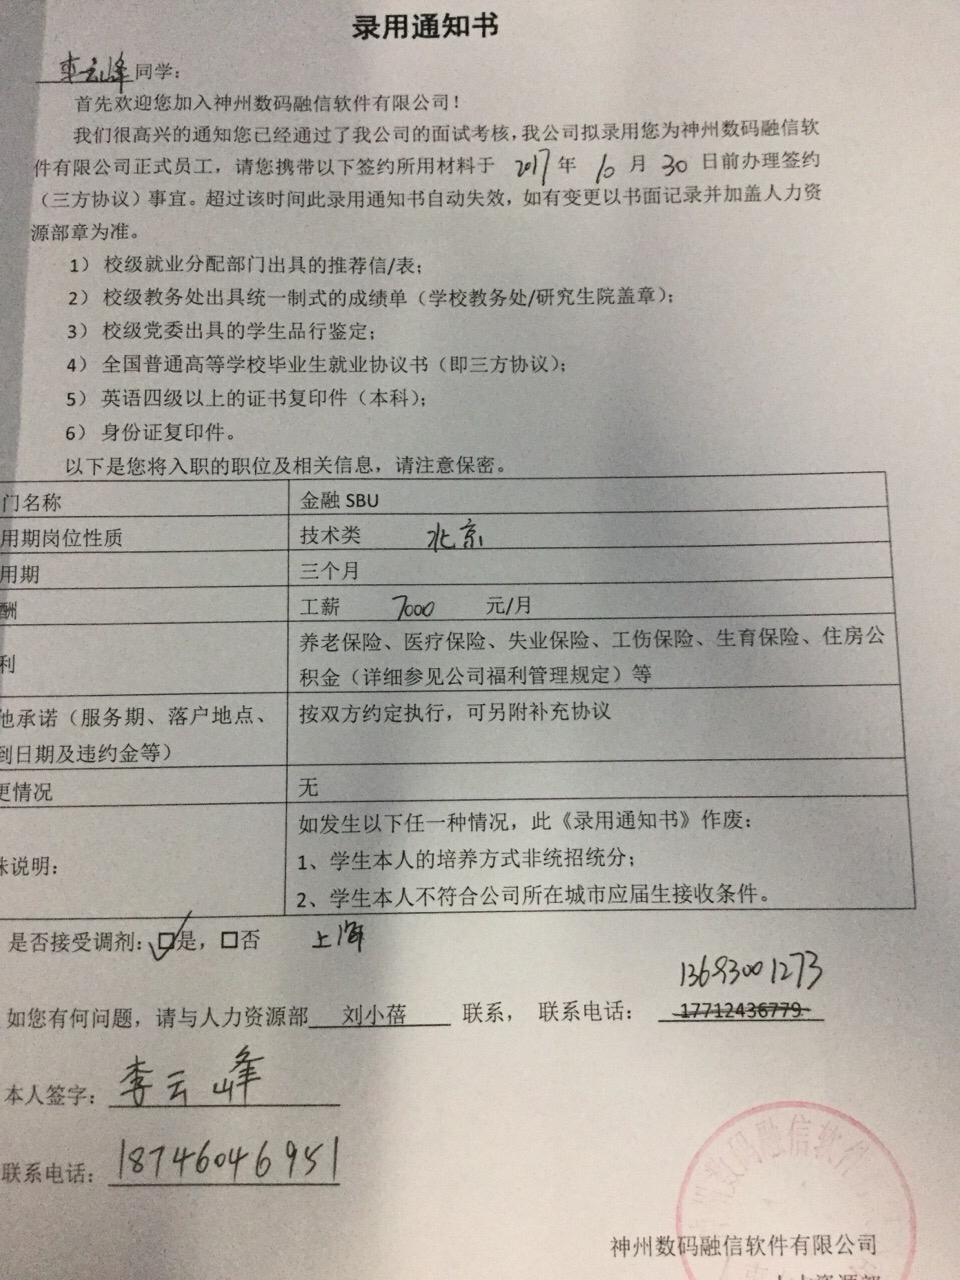 录用通知书
李云峰同学：
首先欢迎您加入神州数码融信软件有限公司！
我们很高兴的通知您已经通过了我公司的面试考核，我公司拟录用您为神州数码融信软
件有限公司正式员工，请您携带以下签约所用材料于 2017 年 10 月 30 日前办理签约
（三方协议）事宜。超过该时间此录用通知书自动失效，如有变更以书面记录并加盖人力资
源部章为准。
1） 校级就业分配部门出具的推荐信/表；
2） 校级教务处出具统一制式的成绩单（学校教务处/研究生院盖章）；
3） 校级党委出具的学生品行鉴定；
4） 全国普通高等学校毕业生就业协议书（即三方协议）；
5） 英语四级以上的证书复印件（本科）；
6） 身份证复印件。
以下是您将入职的职位及相关信息，请注意保密。
门名称 金融 SBU
用期岗位性质 技术类 北京
用期 三个月
酬 工薪 7000 元/月
利 养老保险、医疗保险、失业保险、工伤保险、生育保险、住房公
积金（详细参见公司福利管理规定）等
他承诺（服务期、落户地点、 按双方约定执行，可另附补充协议
到日期及违约金等）
更情况 无
如发生以下任一种情况，此《录用通知书》作废：
殊说明： 1、学生本人的培养方式非统招统分；
2、学生本人不符合公司所在城市应届生接收条件。
是否接受调剂：☑是，□否 上海
13693001273
如您有何问题，请与人力资源部 刘小蓓 联系， 联系电话： 17712436779
本人签字：李云峰
联系电话：18746046951
神州数码融信软件有限公司
人力资源部